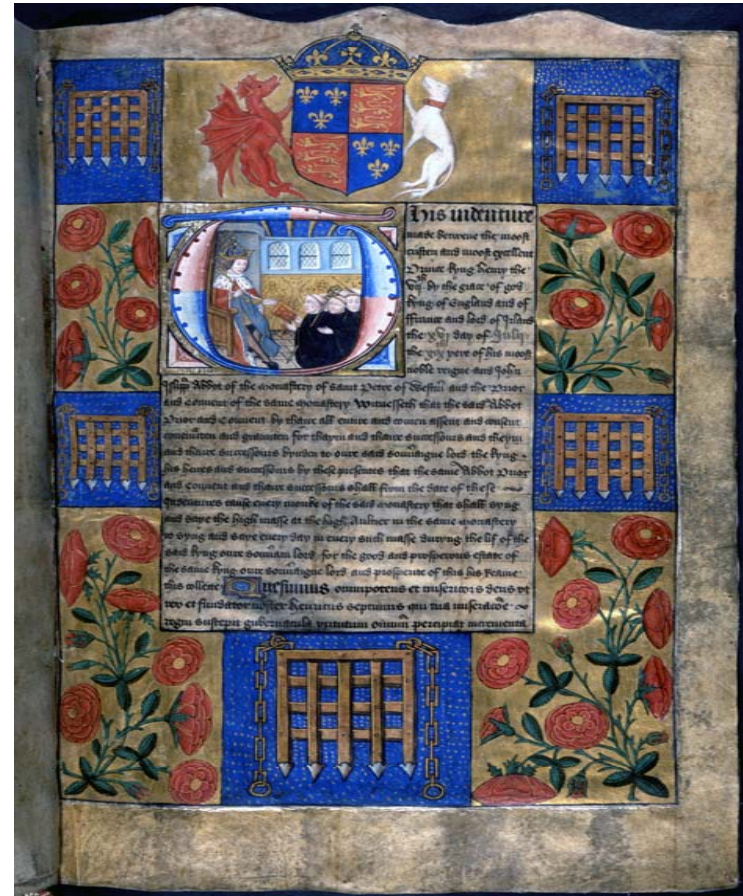 This indenture
made betwene the moost
cristen and moost excellent
Prince kyng henry the
vijth by the grace of god
kyng of England and of
ffraunce and lord of Irland
the xvj day of Julij
the xix yere of his moost
noble reigne and John
Islipp Abbot of the monastery of saint Petre of Westm and the Priour
and Convent of the same monastery Witnesseth that the said Abbot
Priour and Convent by thaire alle entire and comen assent and consent
covenaunten and graunten for thaym and thaire successours and theym
and thaire Successours bynden to oure said soveraigne lord the kyng
his heires and successours by these presentes that the same Abbot Priour
and Convent and thaire successours shall from the date of these
Indentures cause every monke of the said monastery that shall syng
and saye the high masse at the high Aulter in the same monastery
to syng and saye every day in every such masse duryng the lif of the
said kyng oure soveraigne lord for the good and prosperous estate of
the same kyng oure soveraigne lord and prosperite of this his Reame
this collecte Quesumus omnipotens et misericors deus ut
rex et fundator noster henricus septimus qui tua miseracone
regni suscepit gubernacula virtutum omnium percipiat incrementa